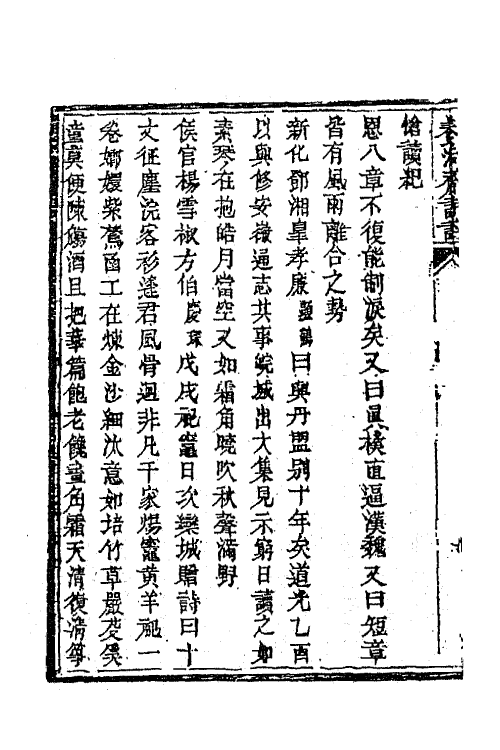 愴讀記
恩八章不復能制淚矣又曰真橫直逼漢魏又曰短章
皆有風雨離合之勢
新化鄧湘皋孝廉顯鶴曰與丹盟別十年矣道光乙酉
以與修安徽通志共事皖城出大集見示窮日讀之如
素琴在抱皓月當空又如霜角曉吹秋聲滿野
侯官楊雪椒方伯慶琛戊戌祀竈日次欒城贈詩曰十
丈征塵浣客衫逢君風骨迥非凡千家煬竈黃羊祀一
卷嫏嬛紫鳳函工在煉金沙細汰意如培竹草嚴芟僕
童莫便陳傷酒且把華篇飽老饞畫角霜天清復清箏